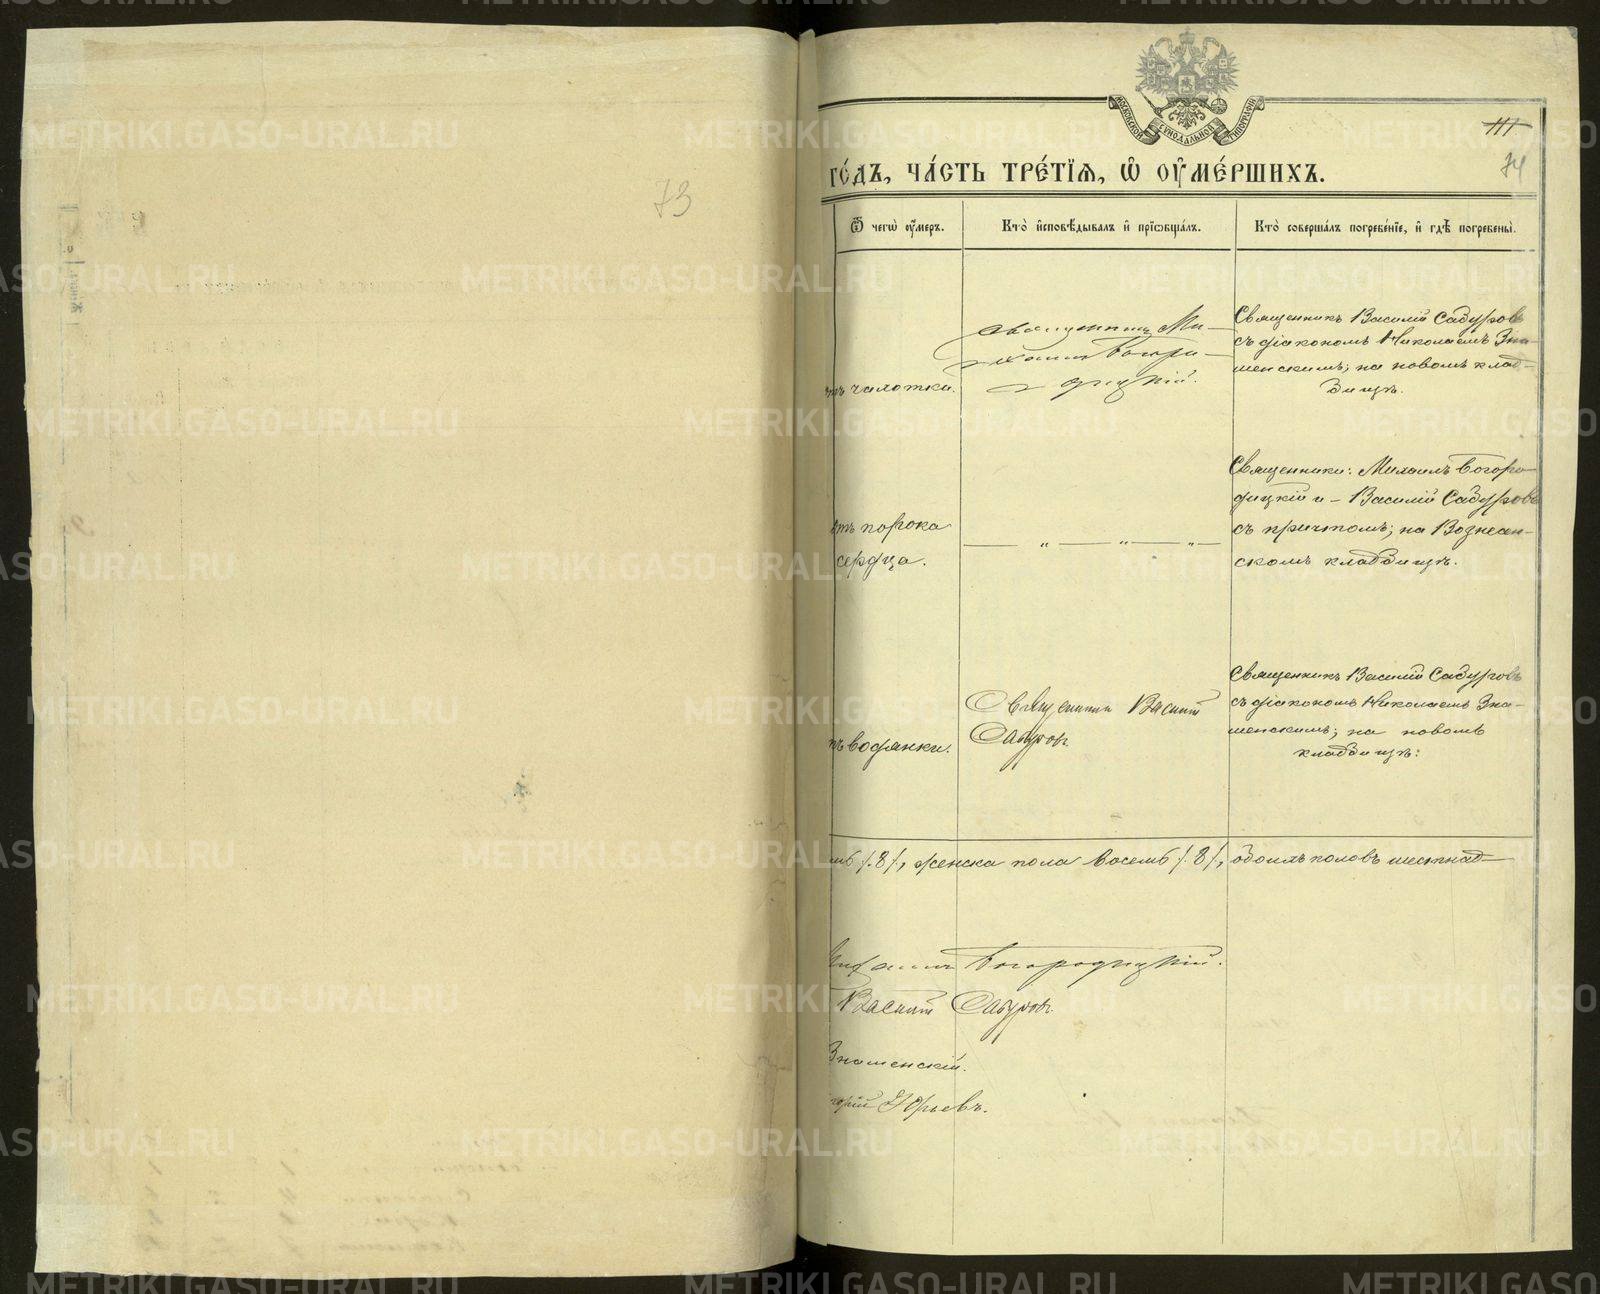 73
МОСКОВСКОЙ СѴНОДАЛЬНОЙ ТИПОГРАФІИ
111
74
ГО́ДЪ, ЧА́СТЬ ТРЕ́ТІѦ, Ѡ҆ ОУ҆МЕ́РШИХЪ.
Ѿ чегѡ̀ оу҆́меръ.
Кто̀ и҆сповѣ́дывалъ и҆ прїѡбща́лъ.
Кто̀ соверша́лъ погребе́нїе, и҆ гдѣ̀ погребены̀.
отъ чахотки.
Священникъ Ми-
хаилъ Богоро-
дицкій.
Священникъ Василій Сабуровъ
съ діакономъ Николаемъ Зна-
менскимъ; на новомъ клад-
бищѣ.
отъ порока
сердца.
— „ — „ — „ —
Священники: Михаилъ Богоро-
дицкій и Василій Сабуровъ
съ причтомъ; на Вознесен-
скомъ кладбищѣ.
отъ водянки.
Священникъ Василій
Сабуровъ
Священникъ Василій Сабуровъ
съ діакономъ Николаемъ Зна-
менскимъ; на новомъ
кладбищѣ:
мь /.8/, женска пола восемь /.8/, обоихъ половъ шестнад-
Михаилъ Богородицкій.
Василій Сабуровъ.
Знаменскій.
горій Юрьевъ.
METRIKI.GASO-URAL.RU